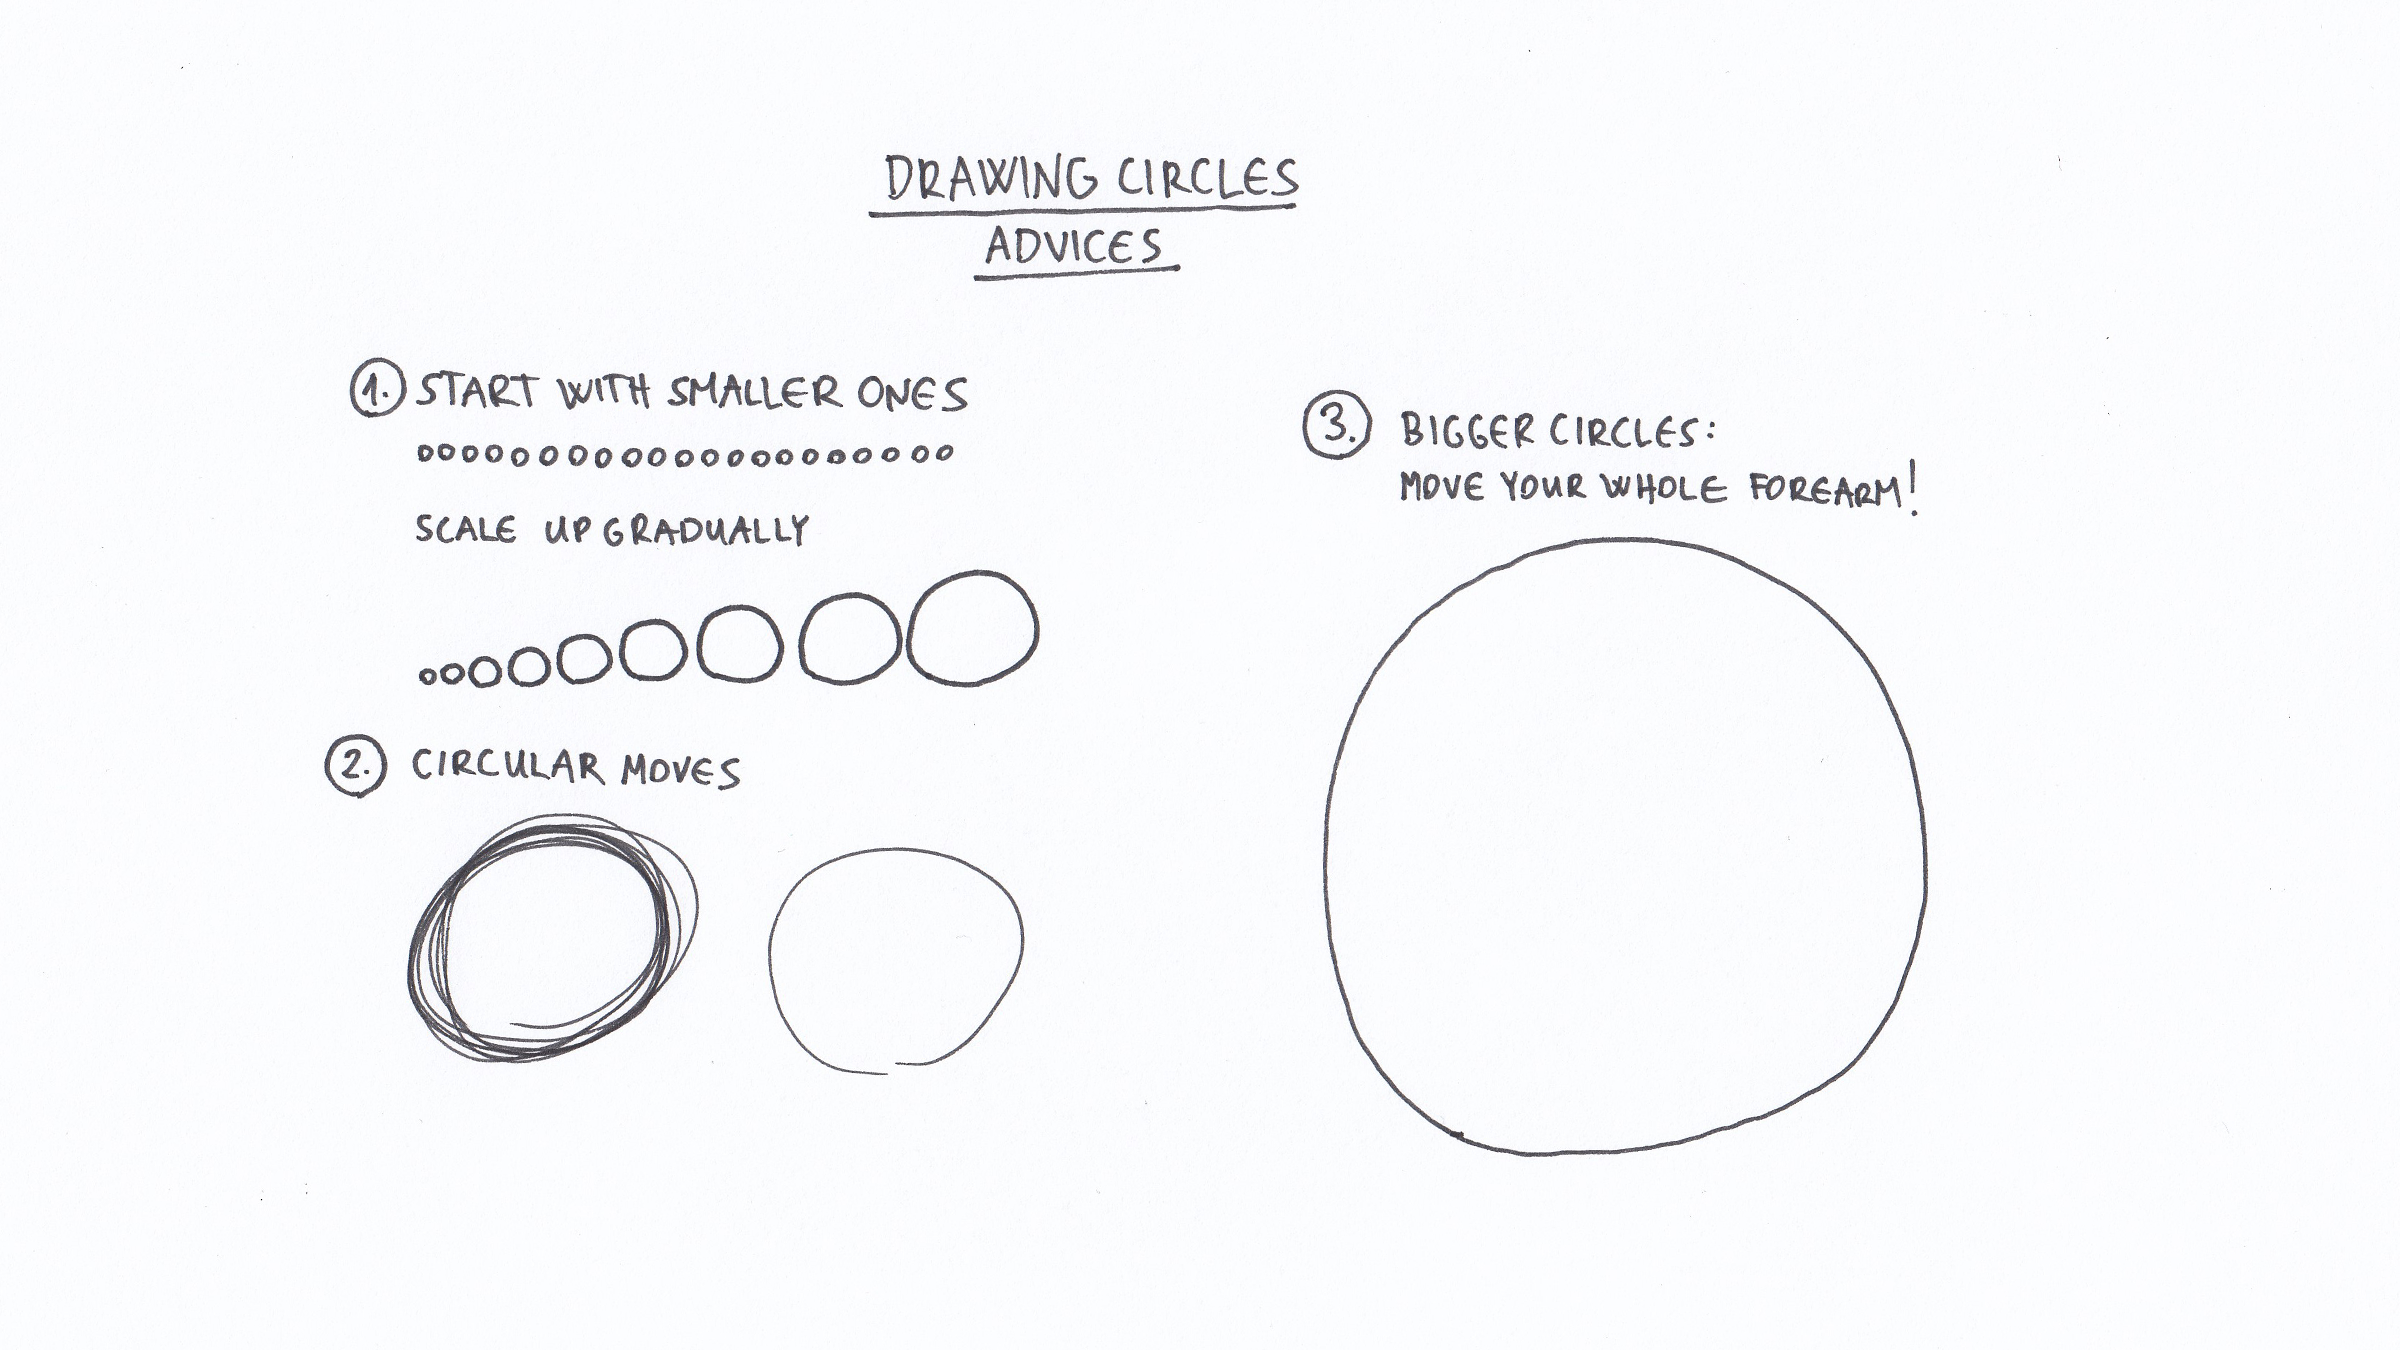 DRAWING CIRCLES
ADVICES
1. START WITH SMALLER ONES
SCALE UP GRADUALLY
2. CIRCULAR MOVES
3. BIGGER CIRCLES:
MOVE YOUR WHOLE FOREARM!